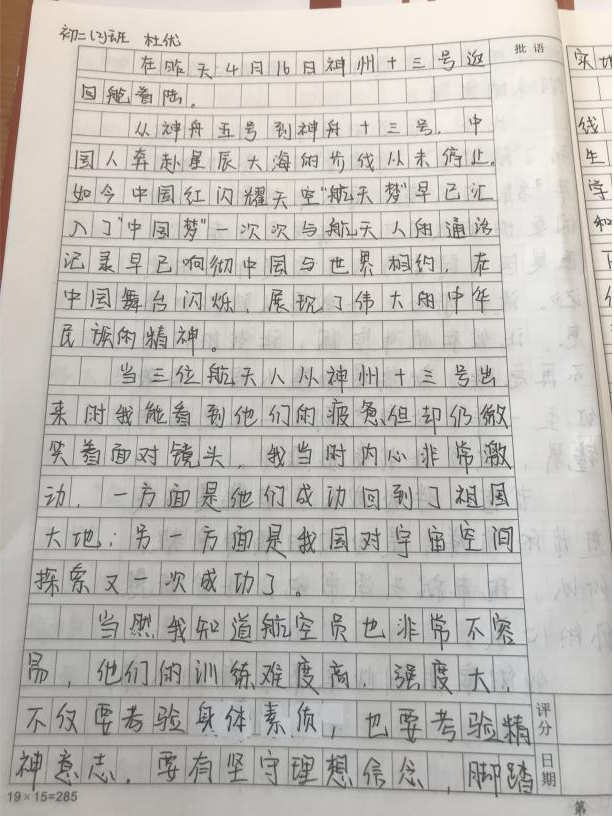 初二(2)班 杜优
批语
在昨天4月16日神州十三号返
回舱着陆。
从神舟五号到神舟十三号，中
国人奔赴星辰大海的步伐从未停止。
如今中国红闪耀天空"航天梦"早已汇
入了"中国梦"一次次与航天人的通话
记录早已响彻中国与世界相约，在
中国舞台闪烁，展现了伟大的中华
民族的精神。
当三位航天人从神州十三号出
来时我能看到他们的疲惫但却仍微
笑着面对镜头，我当时内心非常激
动，一方面是他们成功回到了祖国
大地；另一方面是我国对宇宙空间
探索又一次成功了。
当然我知道航空员也非常不容
易，他们的训练难度高，强度大，
不仅要考验身体素质，也要考验精
神意志。要有坚守理想信念，脚踏
评分
日期
19×15=285
第
实地
线
生
学
和